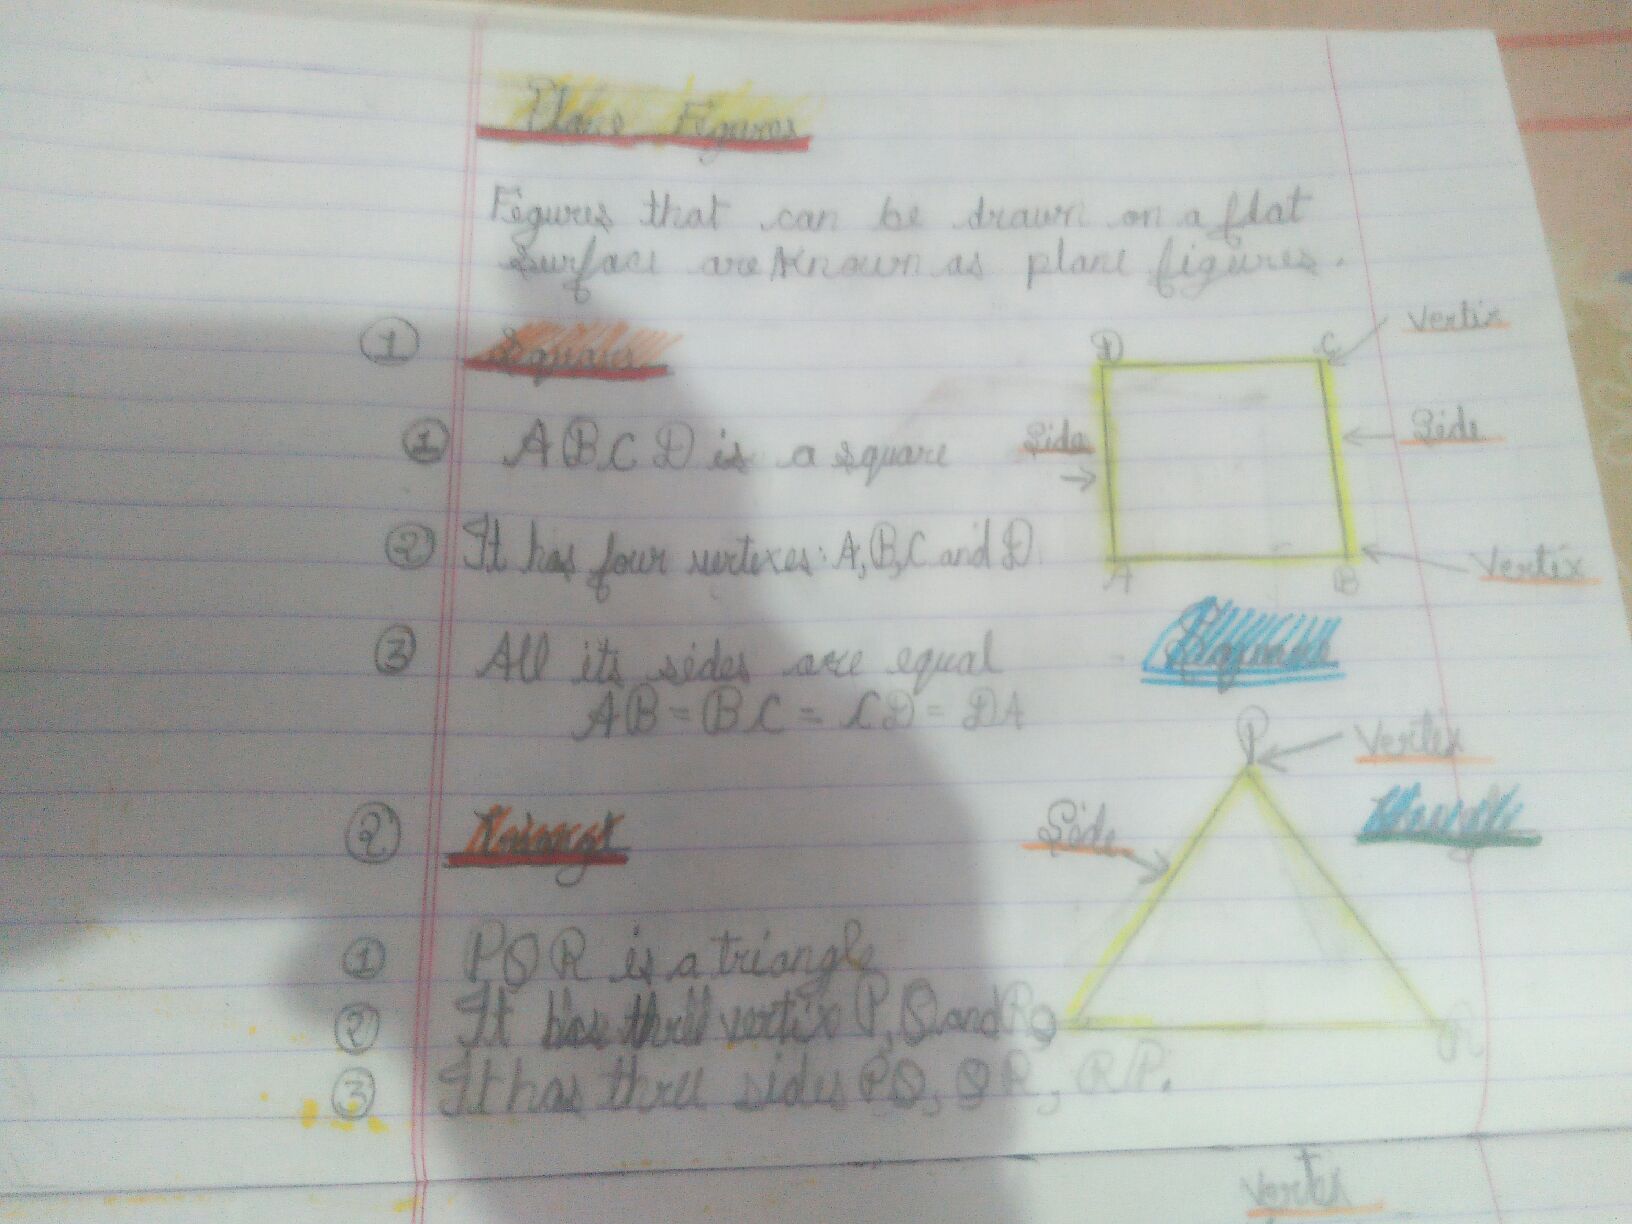 Plane Figures
Figures that can be drawn on a flat
surface are known as plane figures.
① Square
D C Vertix
① ABCD is a square
Side Side
② It has four vertexes: A, B, C and D.
A B Vertix
③ All its sides are equal
AB = BC = CD = DA
P Vertix
② Triangl
Side
① PQR is a triangle
② It has three vertix P, Q and R
Q R
③ It has three sides PQ, QR, RP.
Vertex